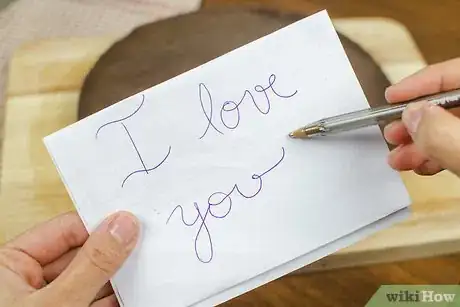 I love
you
wikiHow